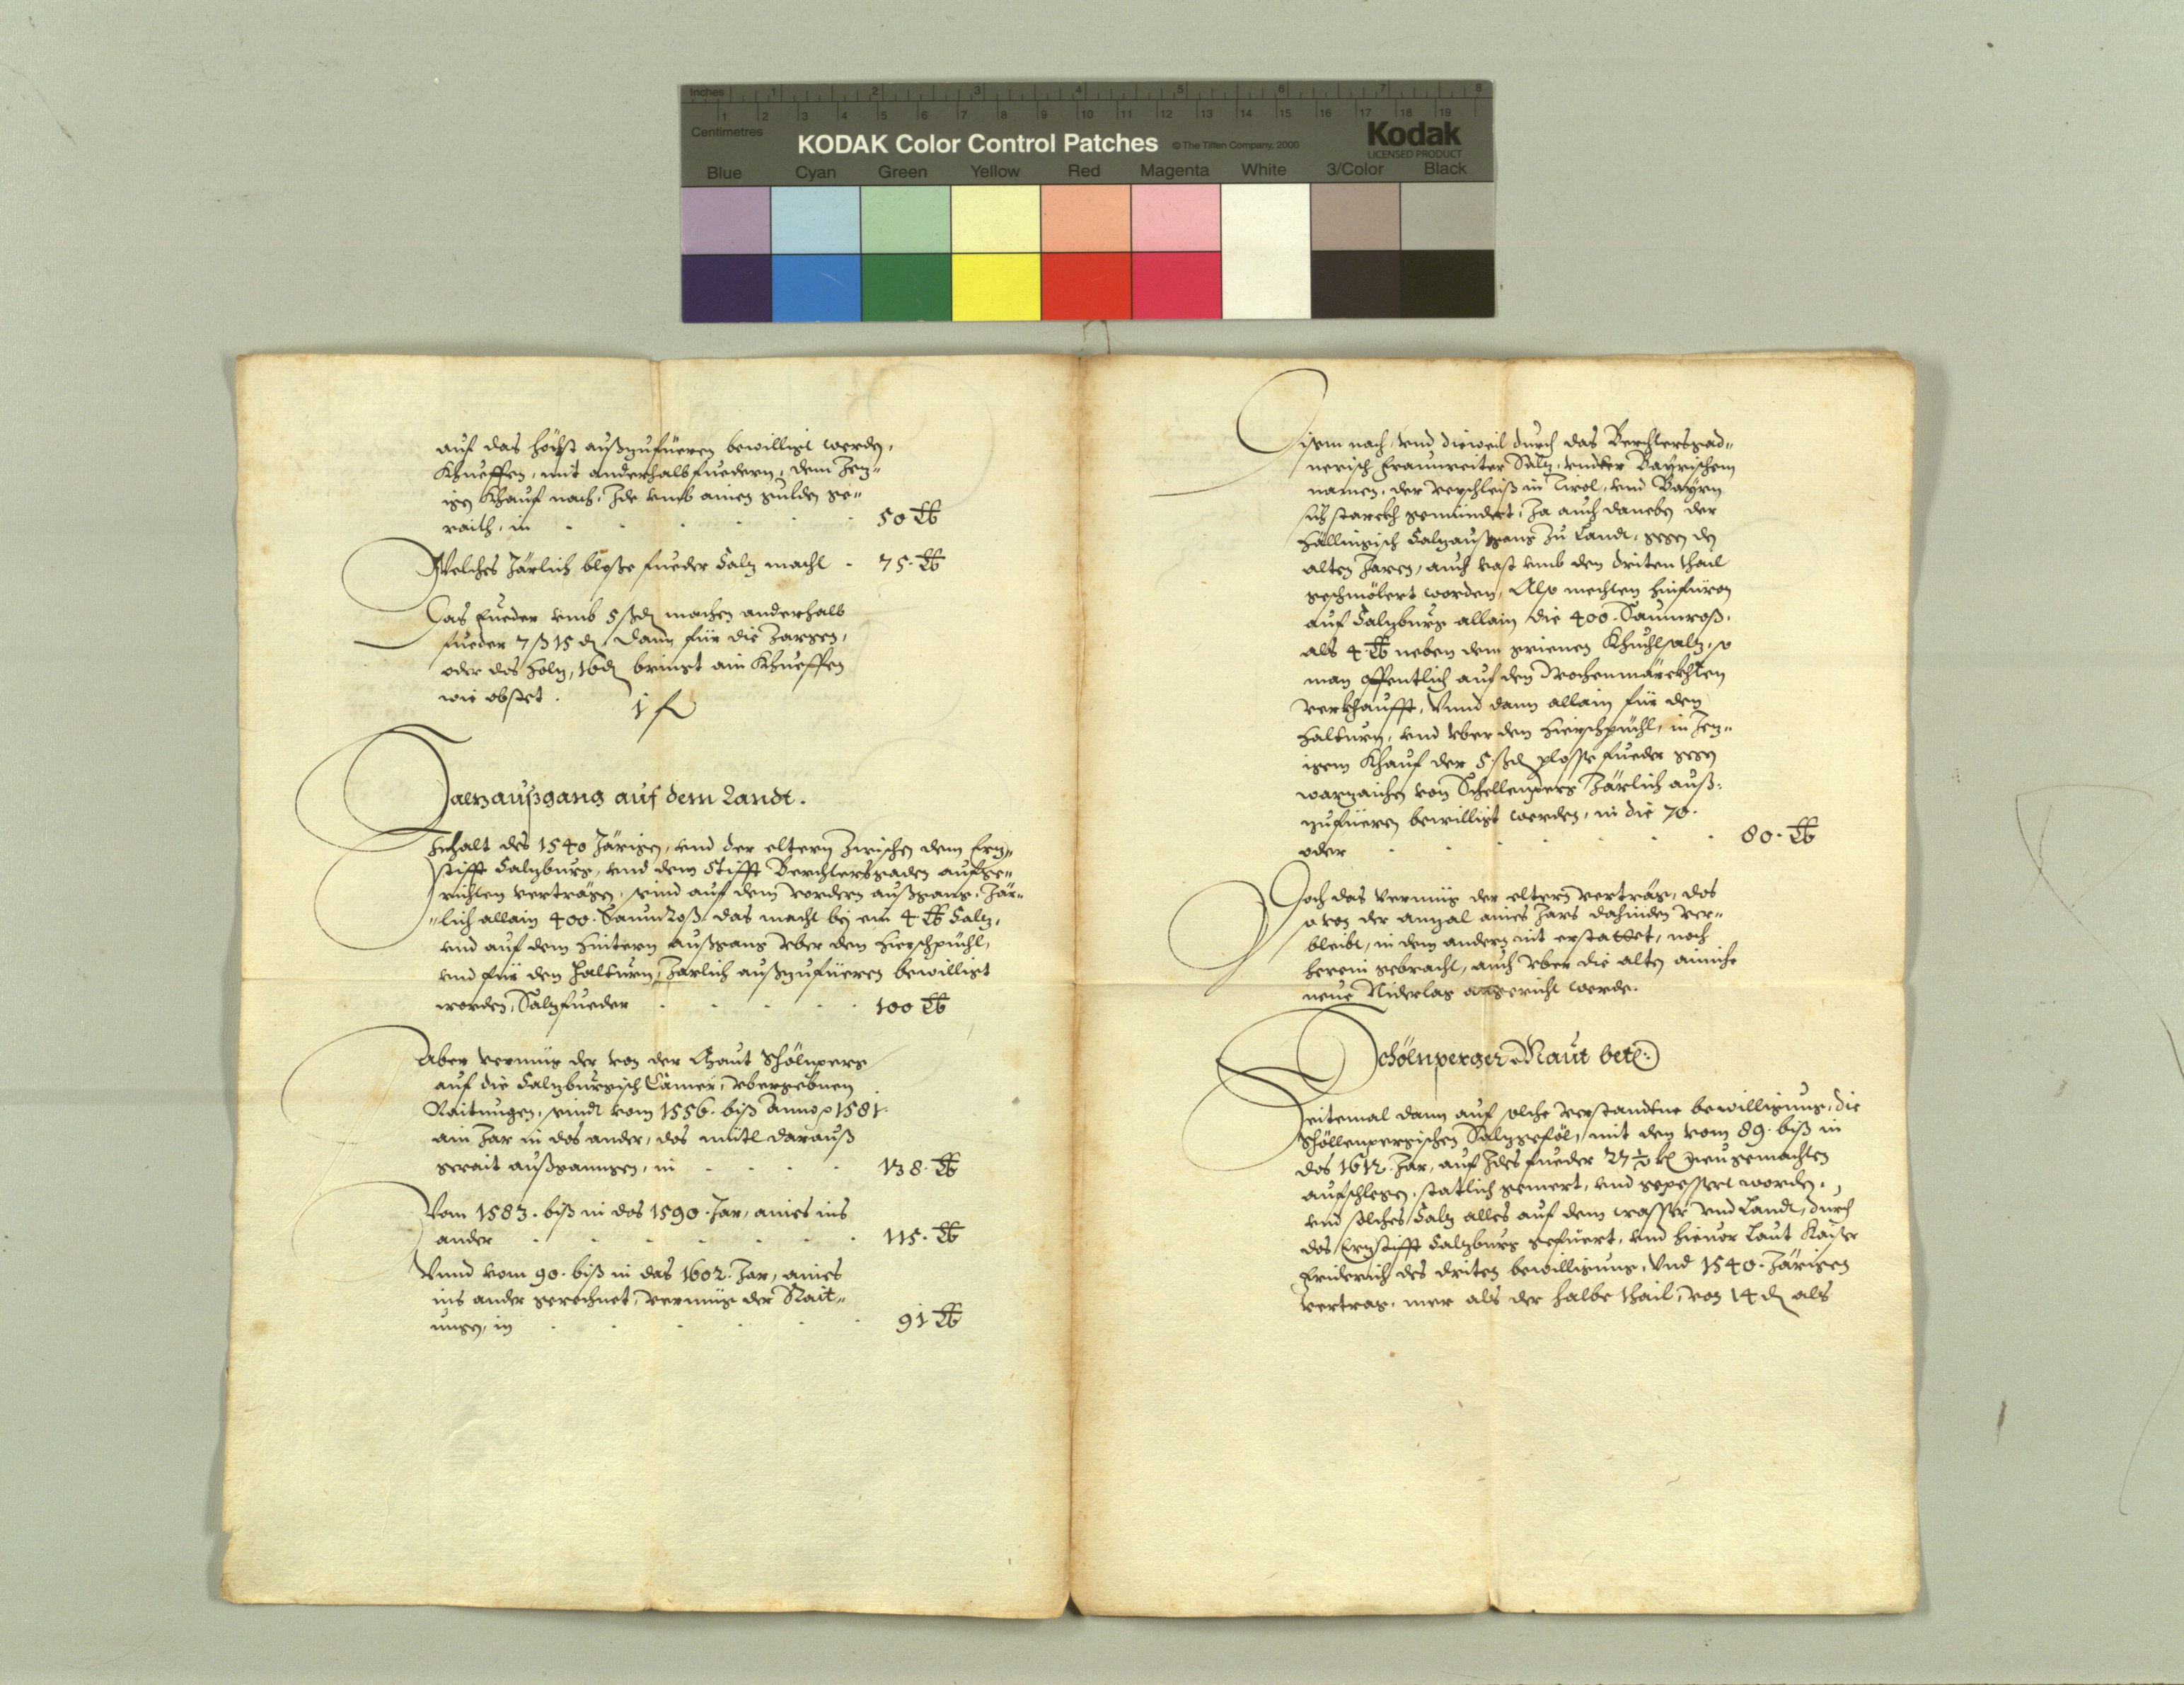 Inches 1 2 3 4 5 6 7 8
1 2 3 4 5 6 7 8 9 10 11 12 13 14 15 16 17 18 19
Centimetres
KODAK Color Control Patches © The Tiffen Company, 2000 Kodak
LICENSED PRODUCT
Blue Cyan Green Yellow Red Magenta White 3/Color Black
auf das höchst außzufüeren bewilligt werden,
Khueffen, mit anderhalb fuedern, dem Jez„
igen Khauf nach, Jde vmb ainen gulden ge„
raith, in 50 ℔
Welches Järlich bloße fueder Salz macht 75 ℔
Das fueder vmb 5 ß ₰ machen anderhalb
fueder 7 ß 15 ₰, dann für die Zargen,
oder das holz, 16 ₰ bringt ain Khueffen
wie obstet. 1 f
Salzaußgang auf dem Landt.
Inhalt des 1540 Järigen, vnd der eltern Zwischen dem Erz„
stifft Salzburg, vnd dem Stifft Berchtersgaden aufge„
richten verträgen, sind auf dem vordern außgang, Jär„
„lich allain 400. Saumroß das macht bey ein 4 ℔ Salz,
vnd auf dem hintern außgang vber den Hierschpüchl,
vnd für den Halturn, Järlich außzufüeren bewilligt
worden, Salzfueder 100 ℔
Aber vermüg der von der Maut Schölnperg
auf die Salzburgisch Camer, vbergebnen
Raitungen, sindt vom 1556. biß Anno 1581.
ain Jar in das ander, das mittl darauß
gerait außgangen, in 138 ℔
Vom 1583. biß in das 1590. Jar, aines ins
ander 115. ℔
Vnnd vom 90. biß in das 1602. Jar, aines
ins ander gerechnet, vermüg der Rait„
ungen, in 91 ℔
Disem nach, vnd dieweil durch das Berchtersgad„
nerisch Salz, vnder Bayrischem
namen, der verschleiß in Tirol, vnd Bayrn
sich starckh gemündert, Ja auch daneben der
Hällingisch Salzaußgang zu Landt, gegen den
alten Jaren, auch vast vmb den driten thail
geschmölert worden, Also mechten hinfüron
auf Salzburg allain die 400. Saumroß,
als 4 ℔ neben dem grienen Khuchlsalz, so
man offentlich auf den Wochenmärckhten
verkhaufft, Vnnd dann allain für den
Halturn, vnd vber den Hierschpüchl, in Jez„
igem Khauf der 5 ß ₰ plosse fueder gegen
von Schellenperg Järlich auß„
zufüeren bewilligt werden, in die 70.
oder 80. ℔
Doch das vermüg der eltern verträg, das
so von der anzal aines Jars dahinden ver„
bleibt, in dem andern nit erstattet, noch
herein gebracht, auch vber die alten ainiche
neue Niderlag angericht werde.
Schölnperger Maut betl:
Seitemal dann auf solche verstandtne bewilligung, die
Schöllenpergischen Salzgeföl, mit den vom 89. biß in
das 1612. Jar, auf Jdes fueder 27 ½ kr neugemachten
aufschlegen, statlich gemert, vnd gepessert worden,
vnd solches Salz alles auf dem wasser vnd Landt, durch
das Erzstifft Salzburg gefüert, vnd hieuor Laut Kayser
Friderich des driten bewilligung, Vnd 1540. Järigen
vertrag, mer als der halbe thail, von 14 ₰ als